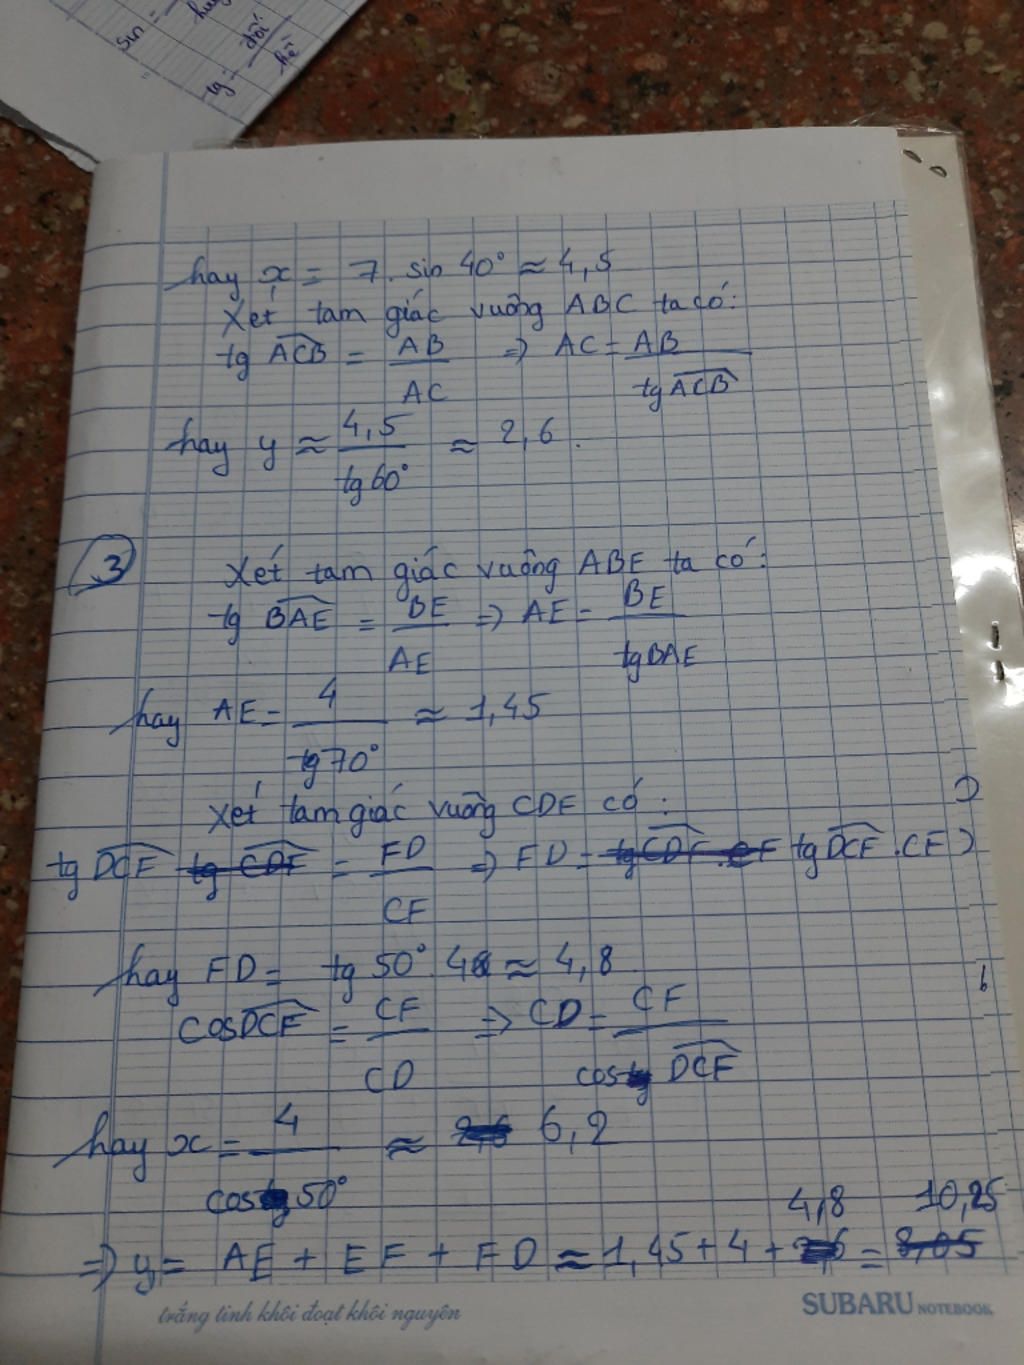 sin =
tg = đối
kề
hay x = 7. sin 40° ≈ 4,5
Xét tam giác vuông ABC ta có:
tg ACB = AB / AC ⇒ AC = AB / tg ACB
hay y ≈ 4,5 / tg 60° ≈ 2,6.
3
Xét tam giác vuông ABE ta có:
tg BAE = BE / AE ⇒ AE = BE / tg BAE
hay AE = 4 / tg 70° ≈ 1,45
Xét tam giác vuông CDF có:
tg DCF = FD / CF ⇒ FD = tg DCF . CF
hay FD = tg 50°. 4 ≈ 4,8
cos DCF = CF / CD ⇒ CD = CF / cos DCF
hay x = 4 / cos 50° ≈ 6,2
⇒ y = AE + EF + FD ≈ 1,45 + 4 + 4,8 = 10,25
trắng tinh khôi đoạt khôi nguyên
SUBARU NOTEBOOK